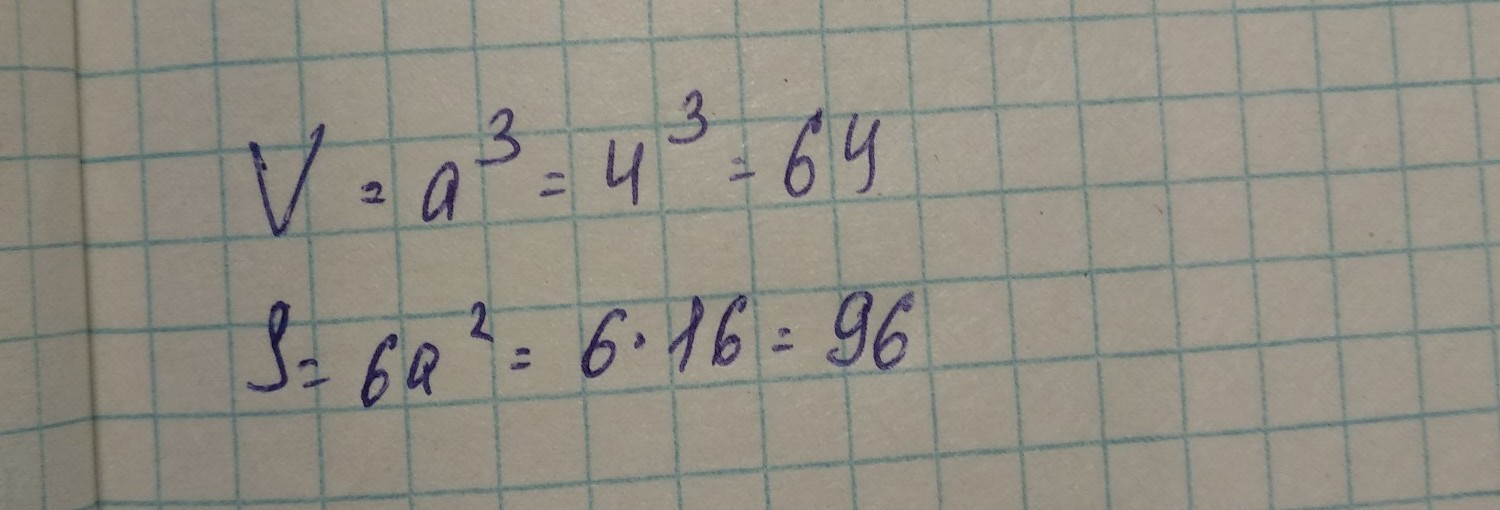 V = a³ = 4³ = 64
S = 6a² = 6 · 16 = 96